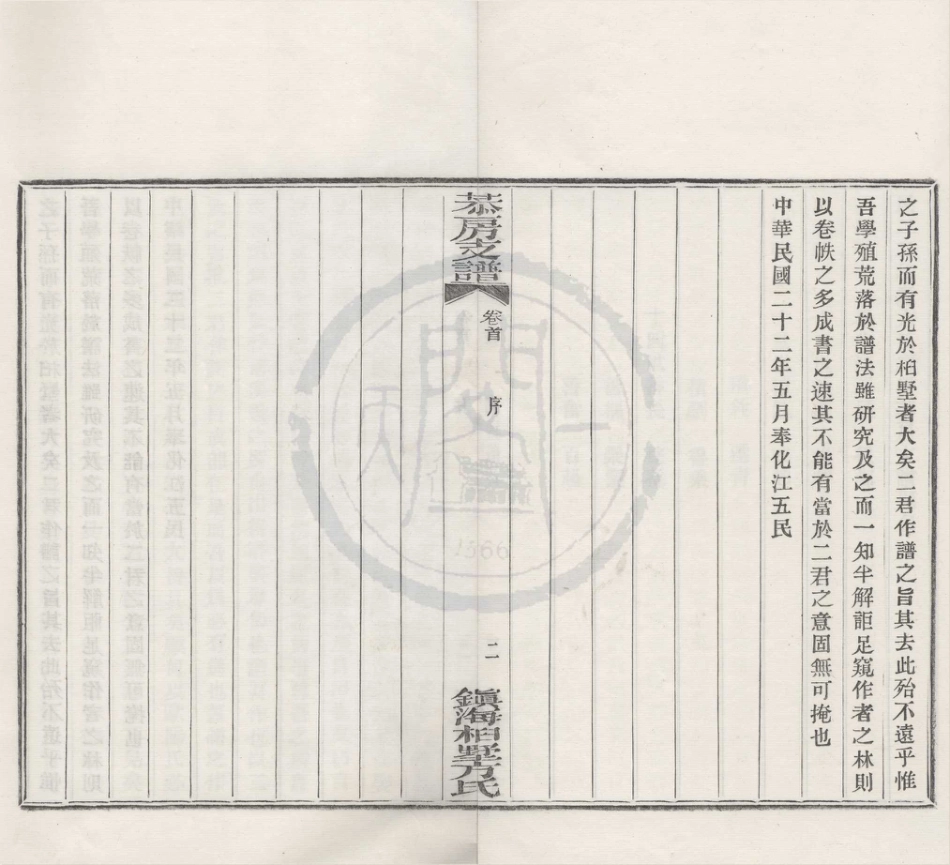 之子孫而有光於桕墅者大矣二君作譜之旨其去此殆不遠乎惟
吾學殖荒落於譜法雖研究及之而一知半解詎足窺作者之林則
以卷帙之多成書之速其不能有當於二君之意固無可掩也
中華民國二十二年五月奉化江五民
恭房支譜
卷首
序
二
鎭海桕墅方氏
天一閣
1566